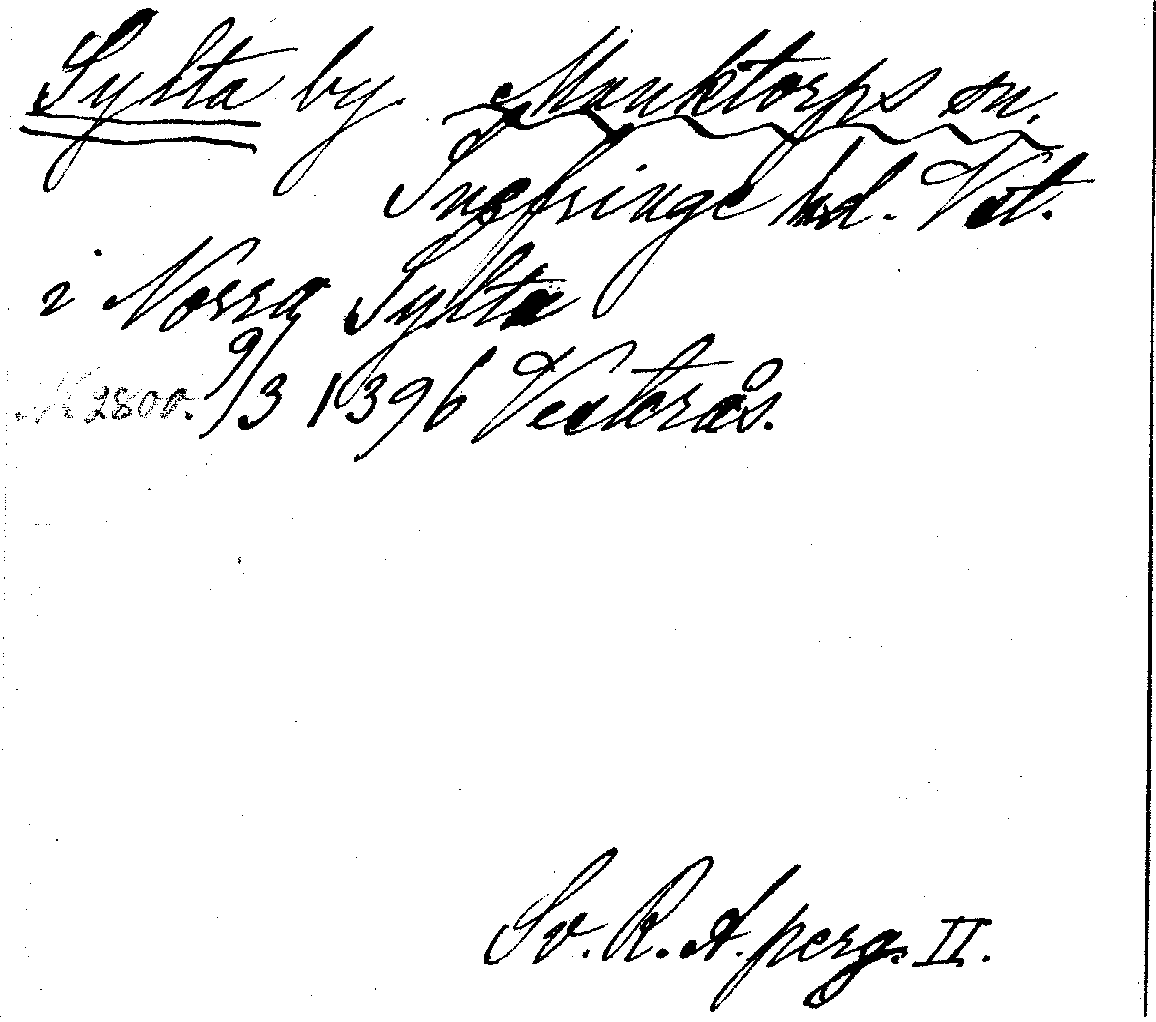 Sylta by. Munktorps sn.
Snefringe hd. Vst.
i Norra Sylta
N 2800. 9/3 1396 Vesterås.
Sv. R. A. perg. II.